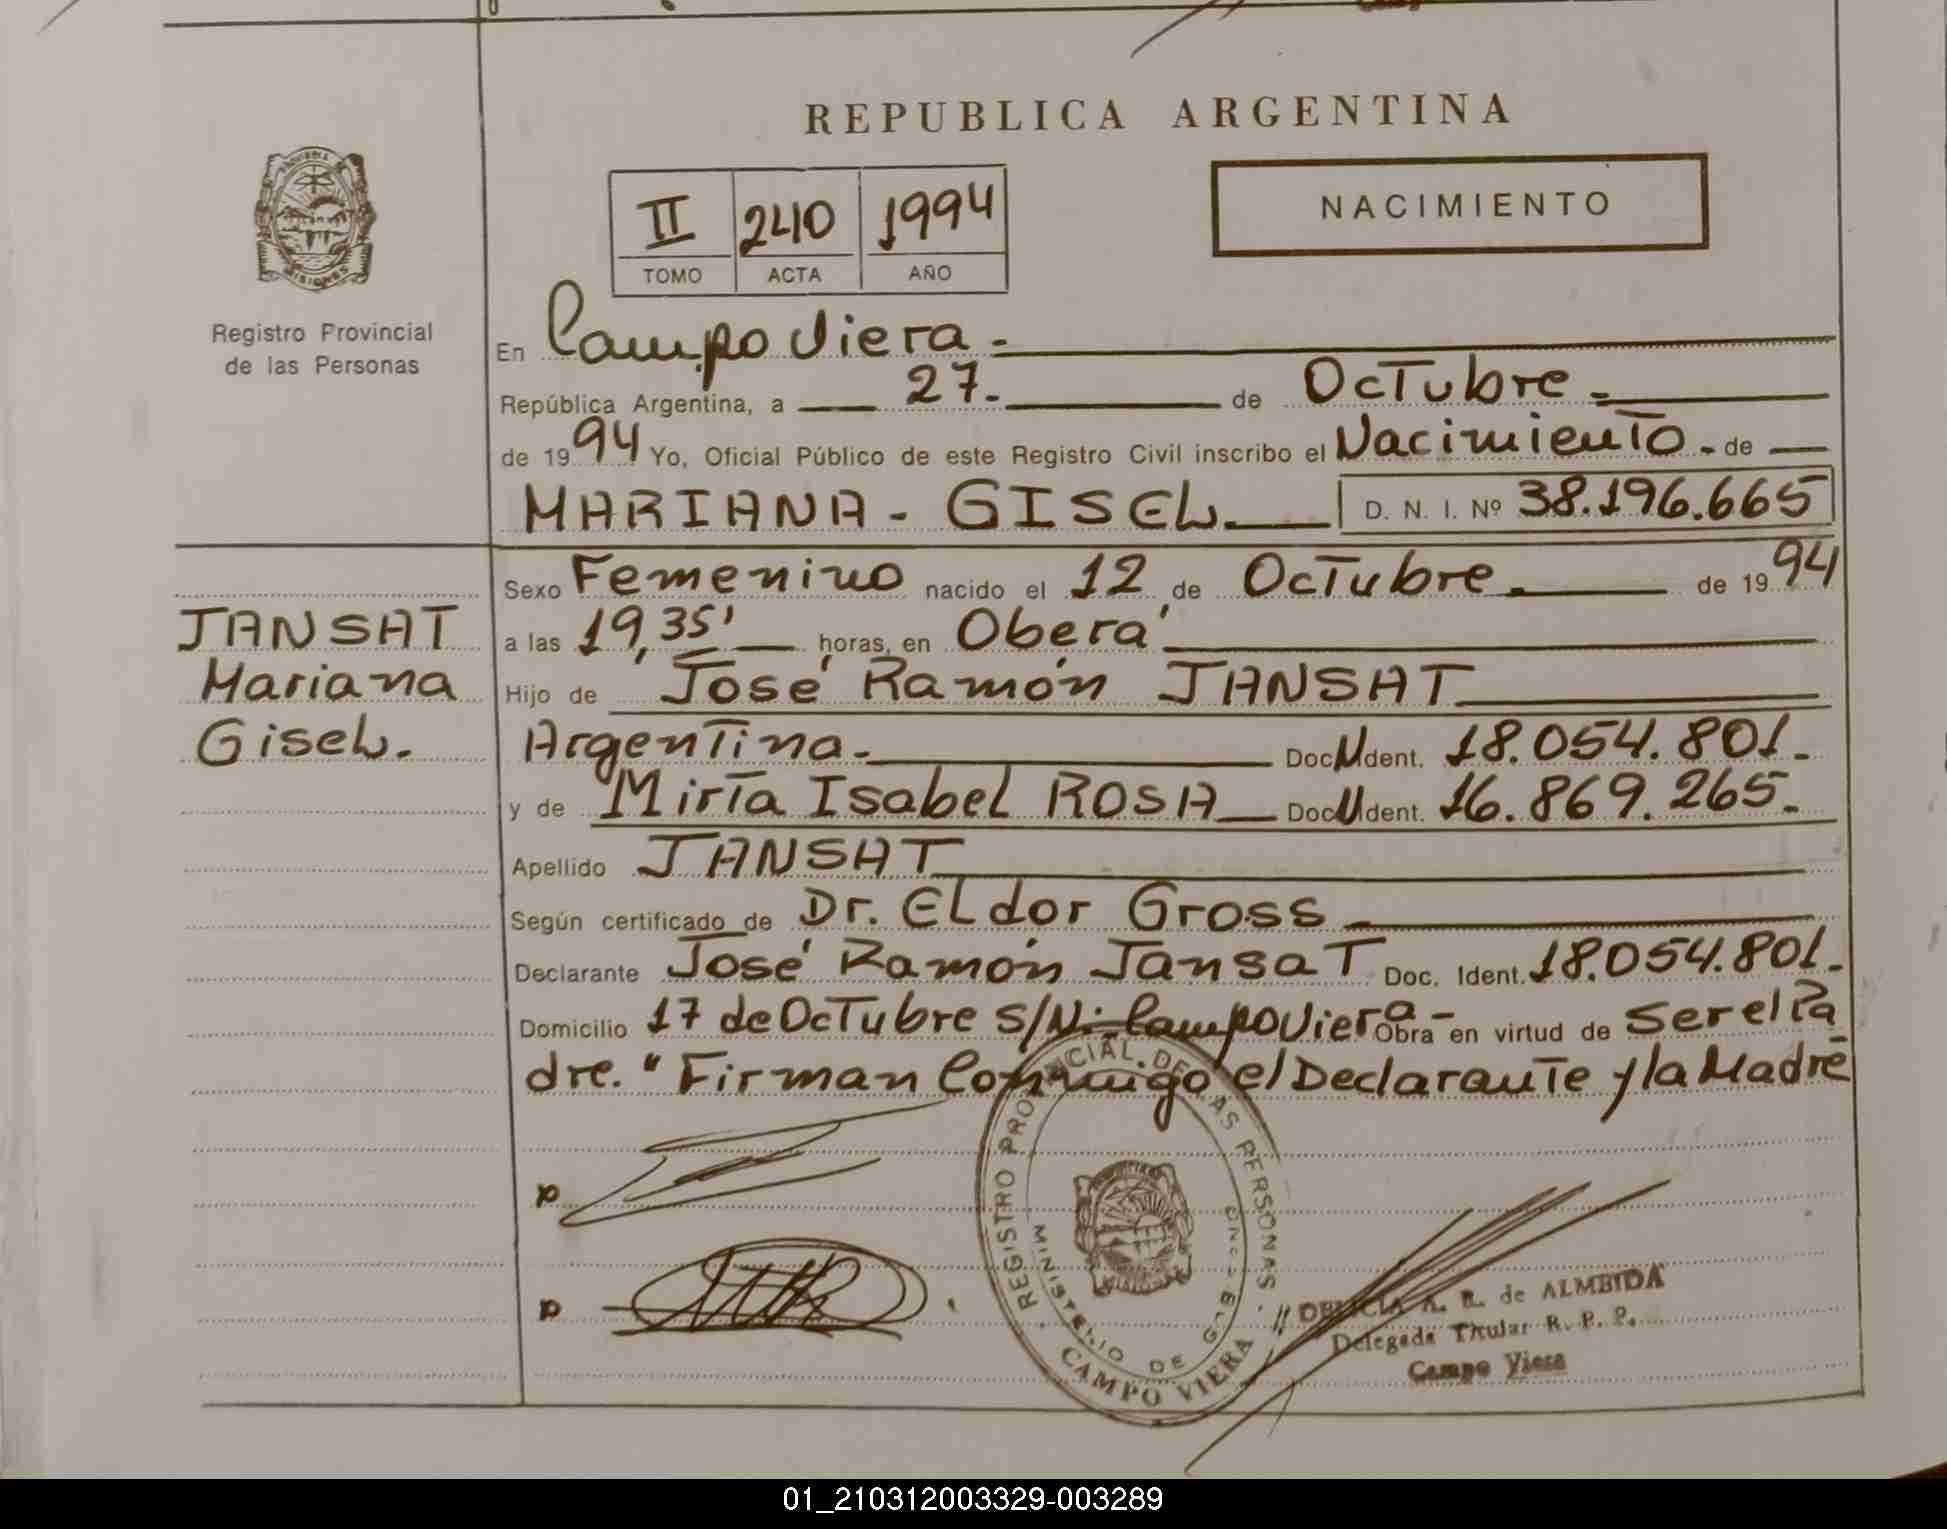 REPUBLICA ARGENTINA
NACIMIENTO
II 240 1994
TOMO ACTA AÑO
Registro Provincial
de las Personas
En Campo Viera.-
República Argentina, a 27.- de Octubre.-
de 1994 Yo, Oficial Público de este Registro Civil inscribo el Nacimiento.- de
MARIANA - GISEL. D. N. I. Nº 38.196.665
Sexo Femenino nacido el 12 de Octubre.- de 1994
a las 19,35' horas, en Oberá
Hijo de José Ramón JANSAT
Argentina.- Doc. Ident. 18.054.801.-
y de Miría Isabel ROSA Doc. Ident. 16.869.265.-
Apellido JANSAT
Según certificado de Dr. Eldor Gross.-
Declarante José Ramón Jansat Doc. Ident. 18.054.801.-
Domicilio 17 de Octubre S/N: Campo Viera- Obra en virtud de ser el Pa
dre. " Firman Conmigo el Declarante y la Madre
JANSAT
Mariana
Gisel.
REGISTRO PROVINCIAL DE LAS PERSONAS
MINISTERIO DE GOB
CAMPO VIERA
A. R. de ALMEIDA
Delegada Titular R. P. P.
Campo Viera
01_210312003329-003289